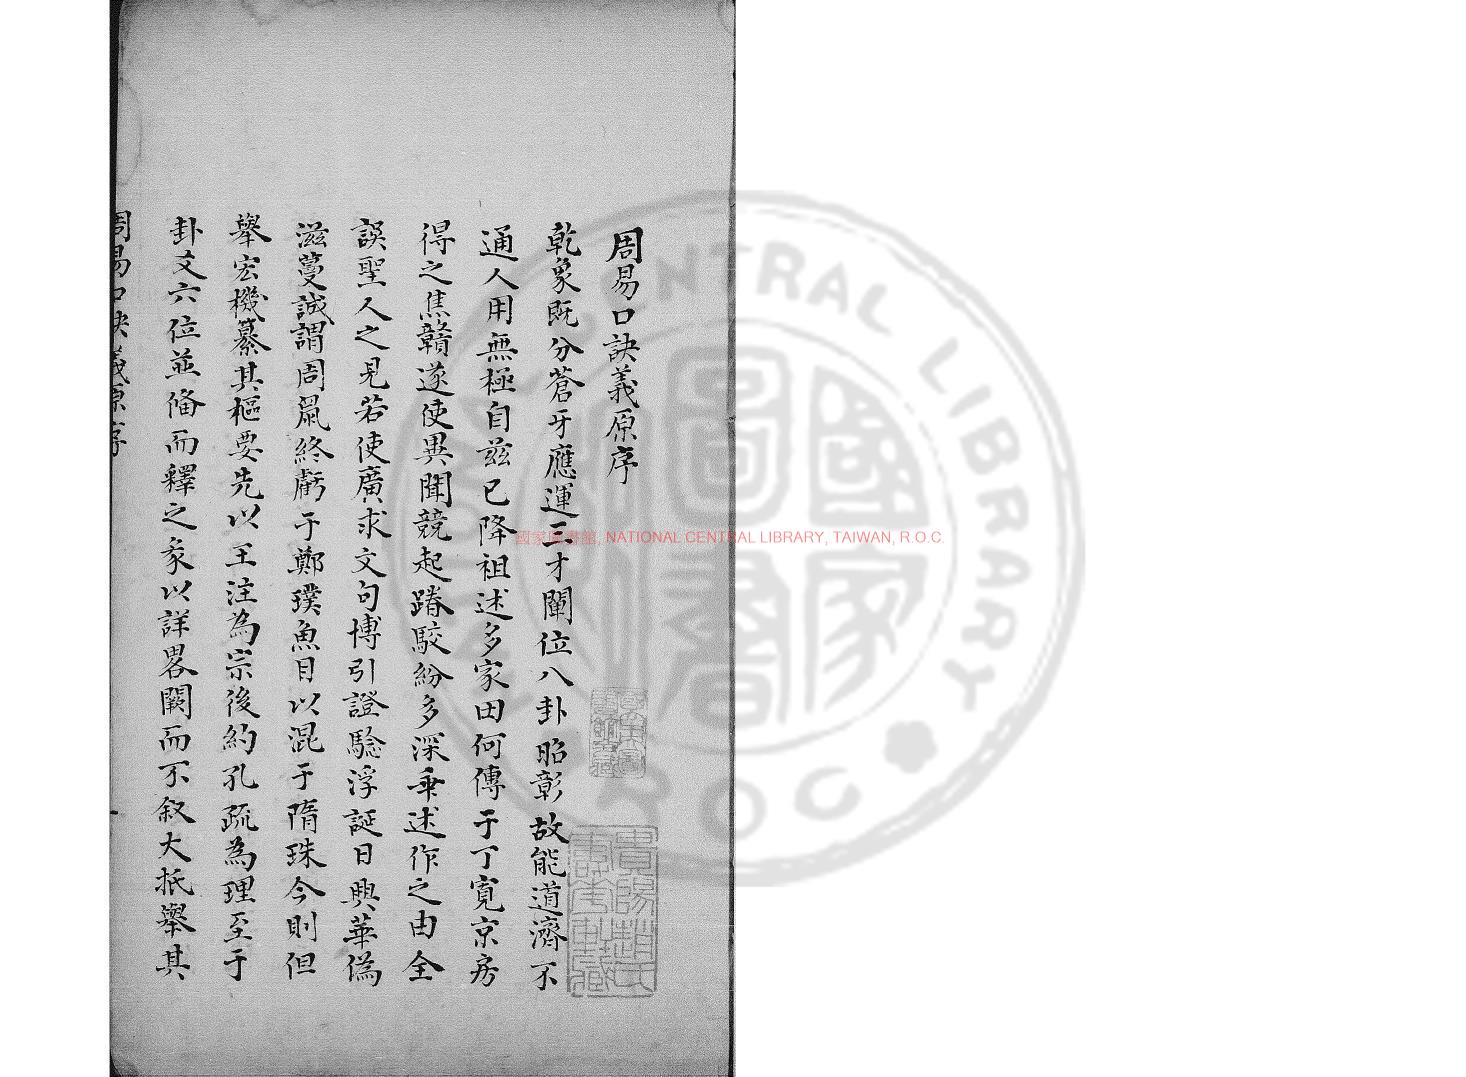 周易口訣義原序
乾象既分蒼牙應運二才闡位八卦昭彰故能道濟不
通人用無極自茲已降祖述多家田何傳于丁寬京房
得之焦贛遂使異聞競起踳駁紛多深乖述作之由全
誤聖人之見若使廣求文句博引證驗浮誕日興華偽
滋蔓誠謂周鼠終虧于鄭璞魚目以混于隋珠今則但
舉宏機纂其樞要先以王注為宗後約孔疏為理至于
卦爻六位並備而釋之象以詳畧闕而不叙大抵舉其
周易口訣義原序
貴陽趙氏
壽華軒藏
國家圖書館, NATIONAL CENTRAL LIBRARY, TAIWAN, R.O.C.
NATIONAL CENTRAL LIBRARY
R.O.C
國家圖書